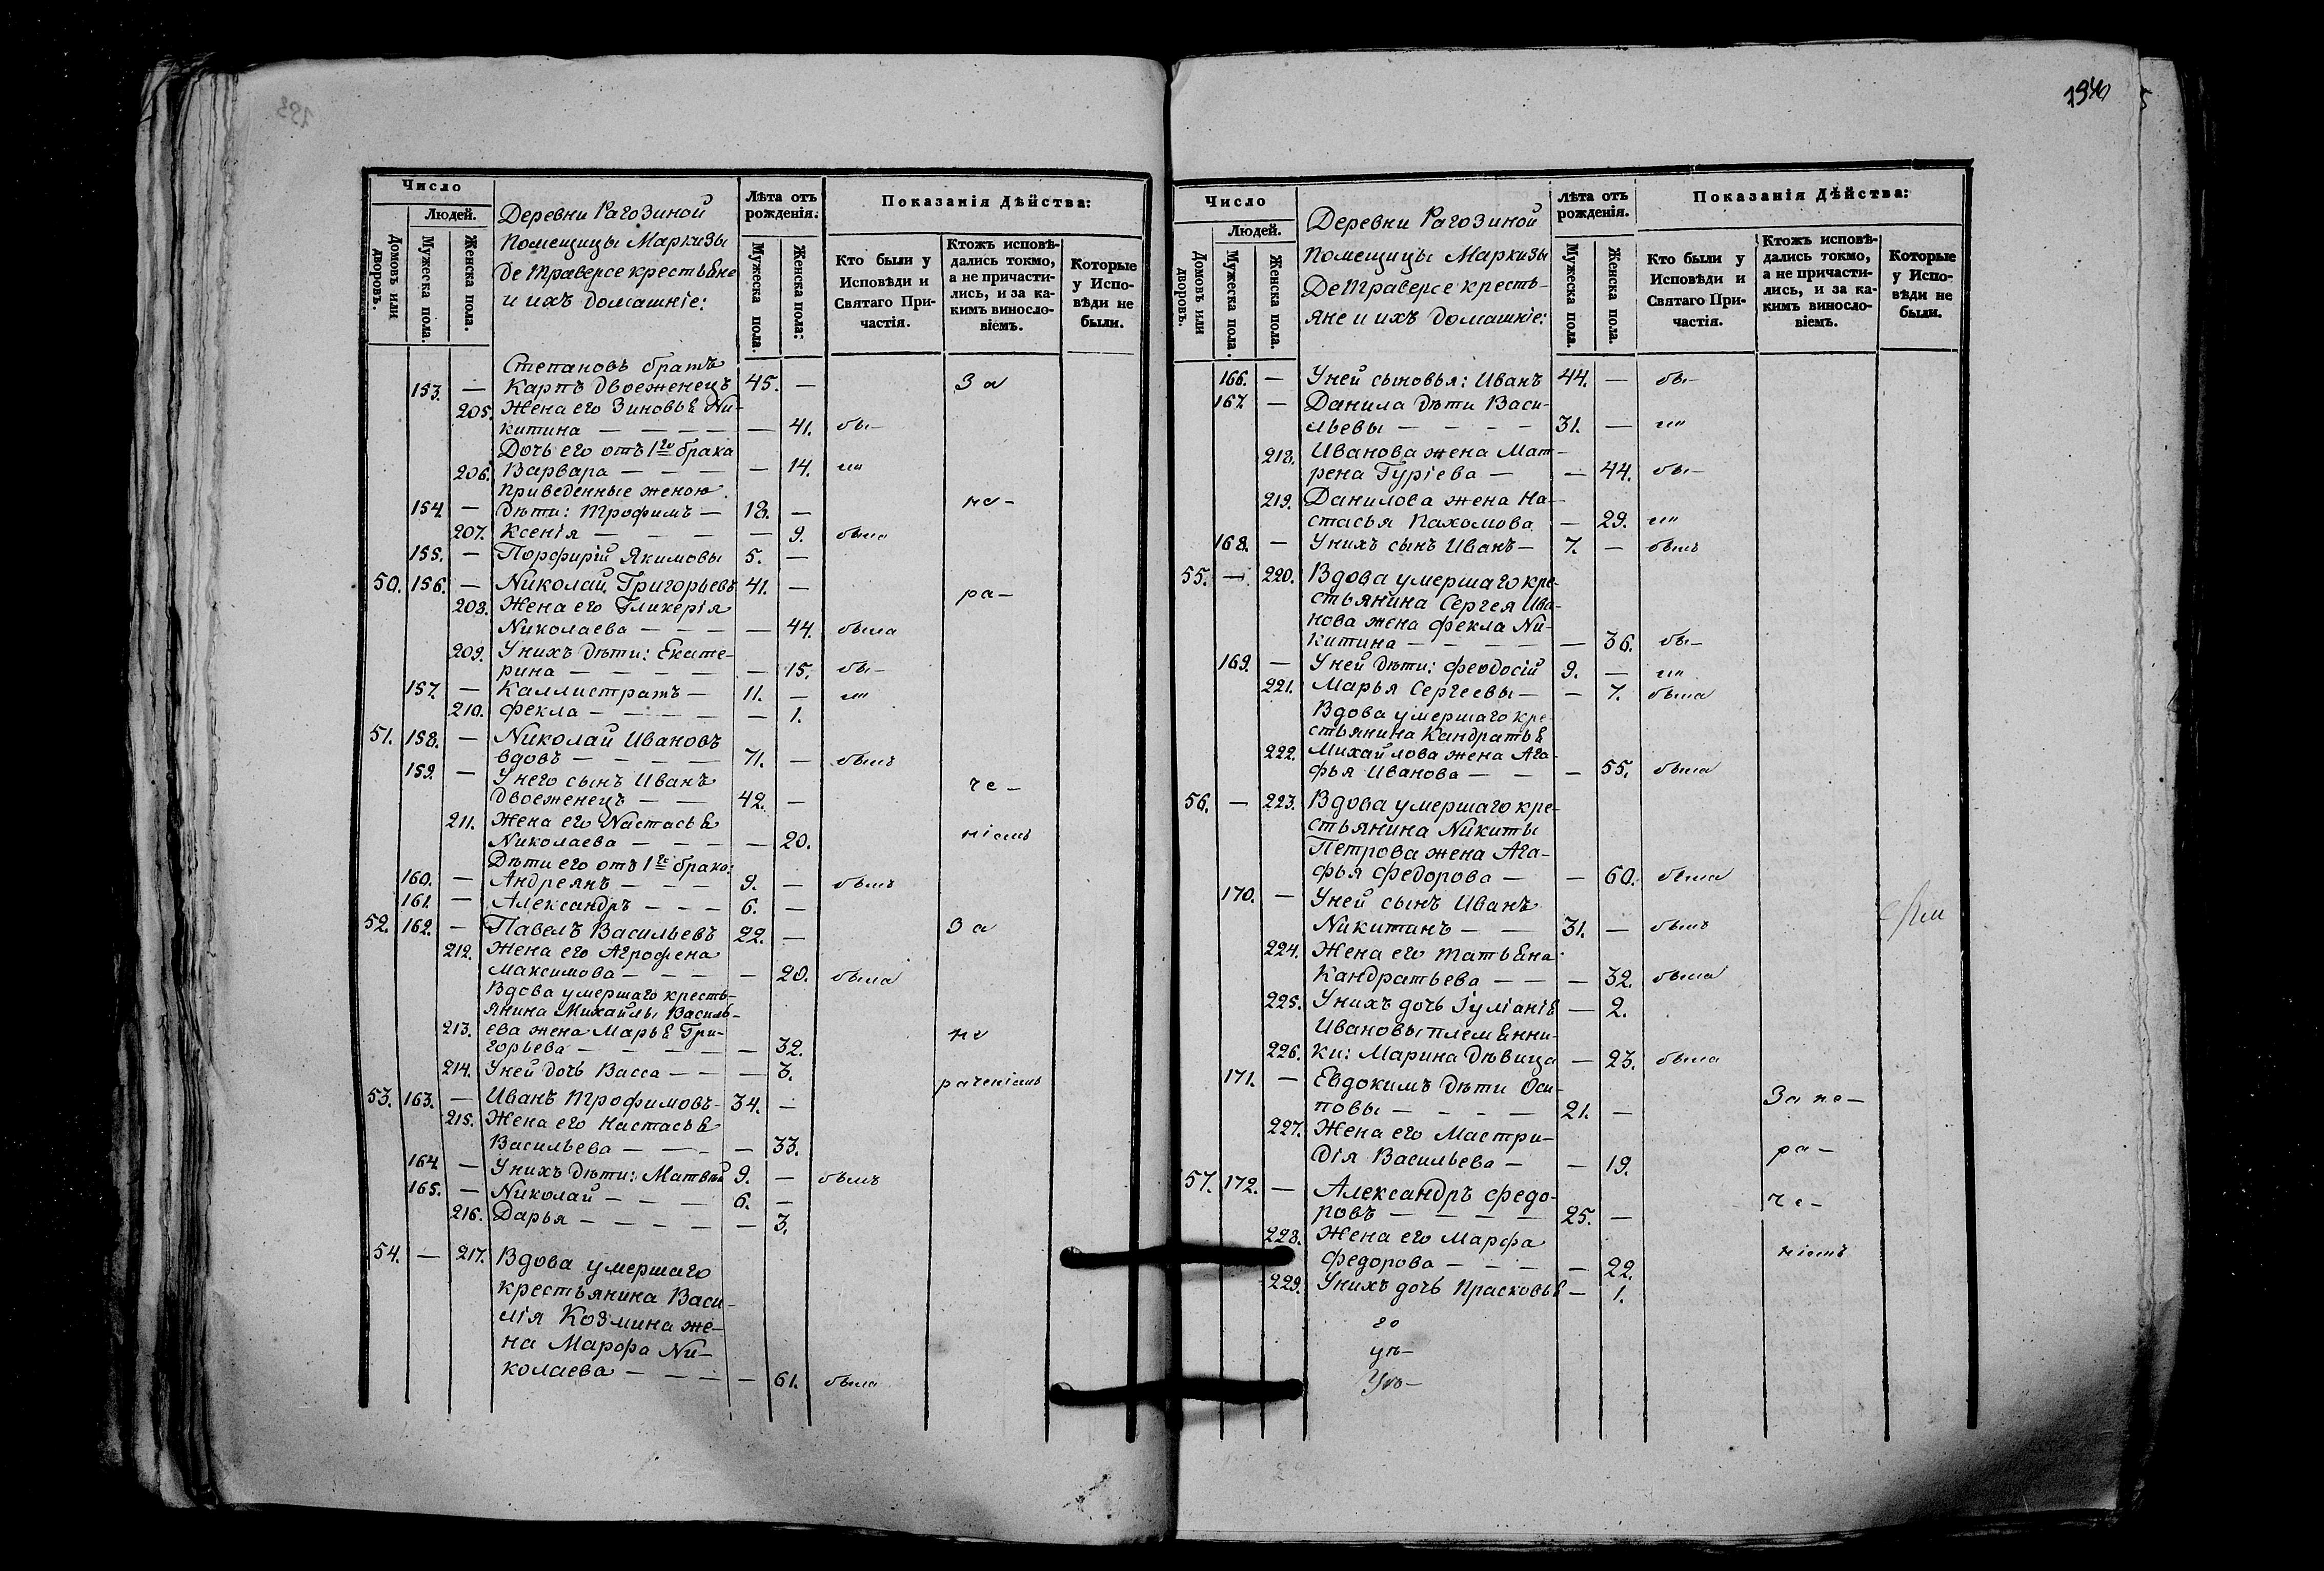 194
Число
Людей.
Домовъ или дворовъ.
Мужеска пола.
Женска пола.
Деревни Рагозиной
помещицы Маркизы
де Траверсе крестьяне
и ихъ домашніе:
Лѣта отъ рожденія:
Мужеска пола.
Женска пола:
Показанія Дѣйства:
Кто были у Исповѣди и Святаго Причастія.
Ктожъ исповѣдались токмо, а не причастились, и за какимъ винословіемъ.
Которые у Исповѣди не были.
Степановъ братъ
153. — Карпъ двоеженецъ 45. — За
205. Жена его Зиновья Ни-
китина — — — — — 41. бы-
Дочь его отъ 1го брака
206. Варвара — — — — 14. ли
приведенные женою
154. — дѣти: Трофимъ — 18. — не-
207. Ксенія — — — — 9. была
155. — Порфирій Якимовы 5. —
50. 156. — Николай Григорьевъ 41. — ра-
208. Жена его Гликерія
Николаева — — — — 44. была
209. У нихъ дѣти: Екате-
рина — — — — — 15. бы-
157. — Каллистратъ — 11. — ли
210. Фекла — — — — — 1.
51. 158. — Николай Ивановъ
вдовъ — — — — 71. — былъ
159. — У него сынъ Иванъ
двоеженецъ — — 42. — че-
211. Жена его Настасья
Николаева — — — — 20. ніемъ
Дѣти его отъ 1го брака:
160. — Андреянъ — — — 9. — былъ
161. — Александръ — — — 6. —
52. 162. — Павелъ Васильевъ 22. — За
212. Жена его Агрофена
Максимова — — — — 20. была
Вдова умершаго кресть-
янина Михайлы Василь-
213. ева жена Марья Гри-
горьева — — — — — 32. не
214. У ней дочь Васса — — — 3. раченіемъ
53. 163. — Иванъ Трофимовъ — 34. —
215. Жена его Настасья
Васильева — — — — 33.
164. — У нихъ дѣти: Матвѣй 9. — былъ
165. — Николай — — — 6. —
216. Дарья — — — — — 3.
54. — 217. Вдова умершаго
крестьянина Васи-
лія Козмина же-
на Марфа Ни-
колаева — — — — 61. была
Число
Людей.
Домовъ или дворовъ.
Мужеска пола.
Женска пола.
Деревни Рагозиной
помещицы Маркизы
Де Траверсе кресть-
яне и ихъ домашніе:
Лѣта отъ рожденія.
Мужеска пола.
Женска пола.
Показанія Дѣйства:
Кто были у Исповѣди и Святаго Причастія.
Ктожъ исповѣдались токмо, а не причастились, и за какимъ винословіемъ.
Которые у Исповѣди не были.
166. — У ней сыновья: Иванъ 44. — бы-
167. — Данила дѣти Васи-
льевы — — — — 31. — ли
218. Иванова жена Мат-
рена Гуріева — — 44. бы-
219. Данилова жена На-
стасья Пахомова — 29. ли
168. — У нихъ сынъ Иванъ — 7. — былъ
55. — 220. Вдова умершаго кре-
стьянина Сергея Ива-
нова жена Фекла Ни-
китина — — — — — 36. бы-
169. — У ней дѣти: Феодосій 9. — ли
221. Марья Сергеевы — — 7. была
Вдова умершаго кре-
стьянина Кандратья
222. Михайлова жена Ага-
фья Иванова — — — 55. была
56. — 223. Вдова умершаго кре-
стьянина Никиты
Петрова жена Ага-
фья Федорова — — 60. была
170. — У ней сынъ Иванъ
Никитинъ — — 31. — былъ
224. Жена его Татьяна
Кандратьева — — — 32. была
225. У нихъ дочь Іуліанія — 2.
Ивановы племянни-
226. ки: Марина дѣвица — 23. была
171. — Евдокимъ дѣти Оси-
повы — — — — 21. — За не-
227. Жена его Мастри-
дія Васильева — — 19. ра-
57. 172. — Александръ Федо-
ровъ — — — — 25. — че-
228. Жена его Марфа
Федорова — — — — 22. ніемъ
229. У нихъ дочь Прасковья — 1.